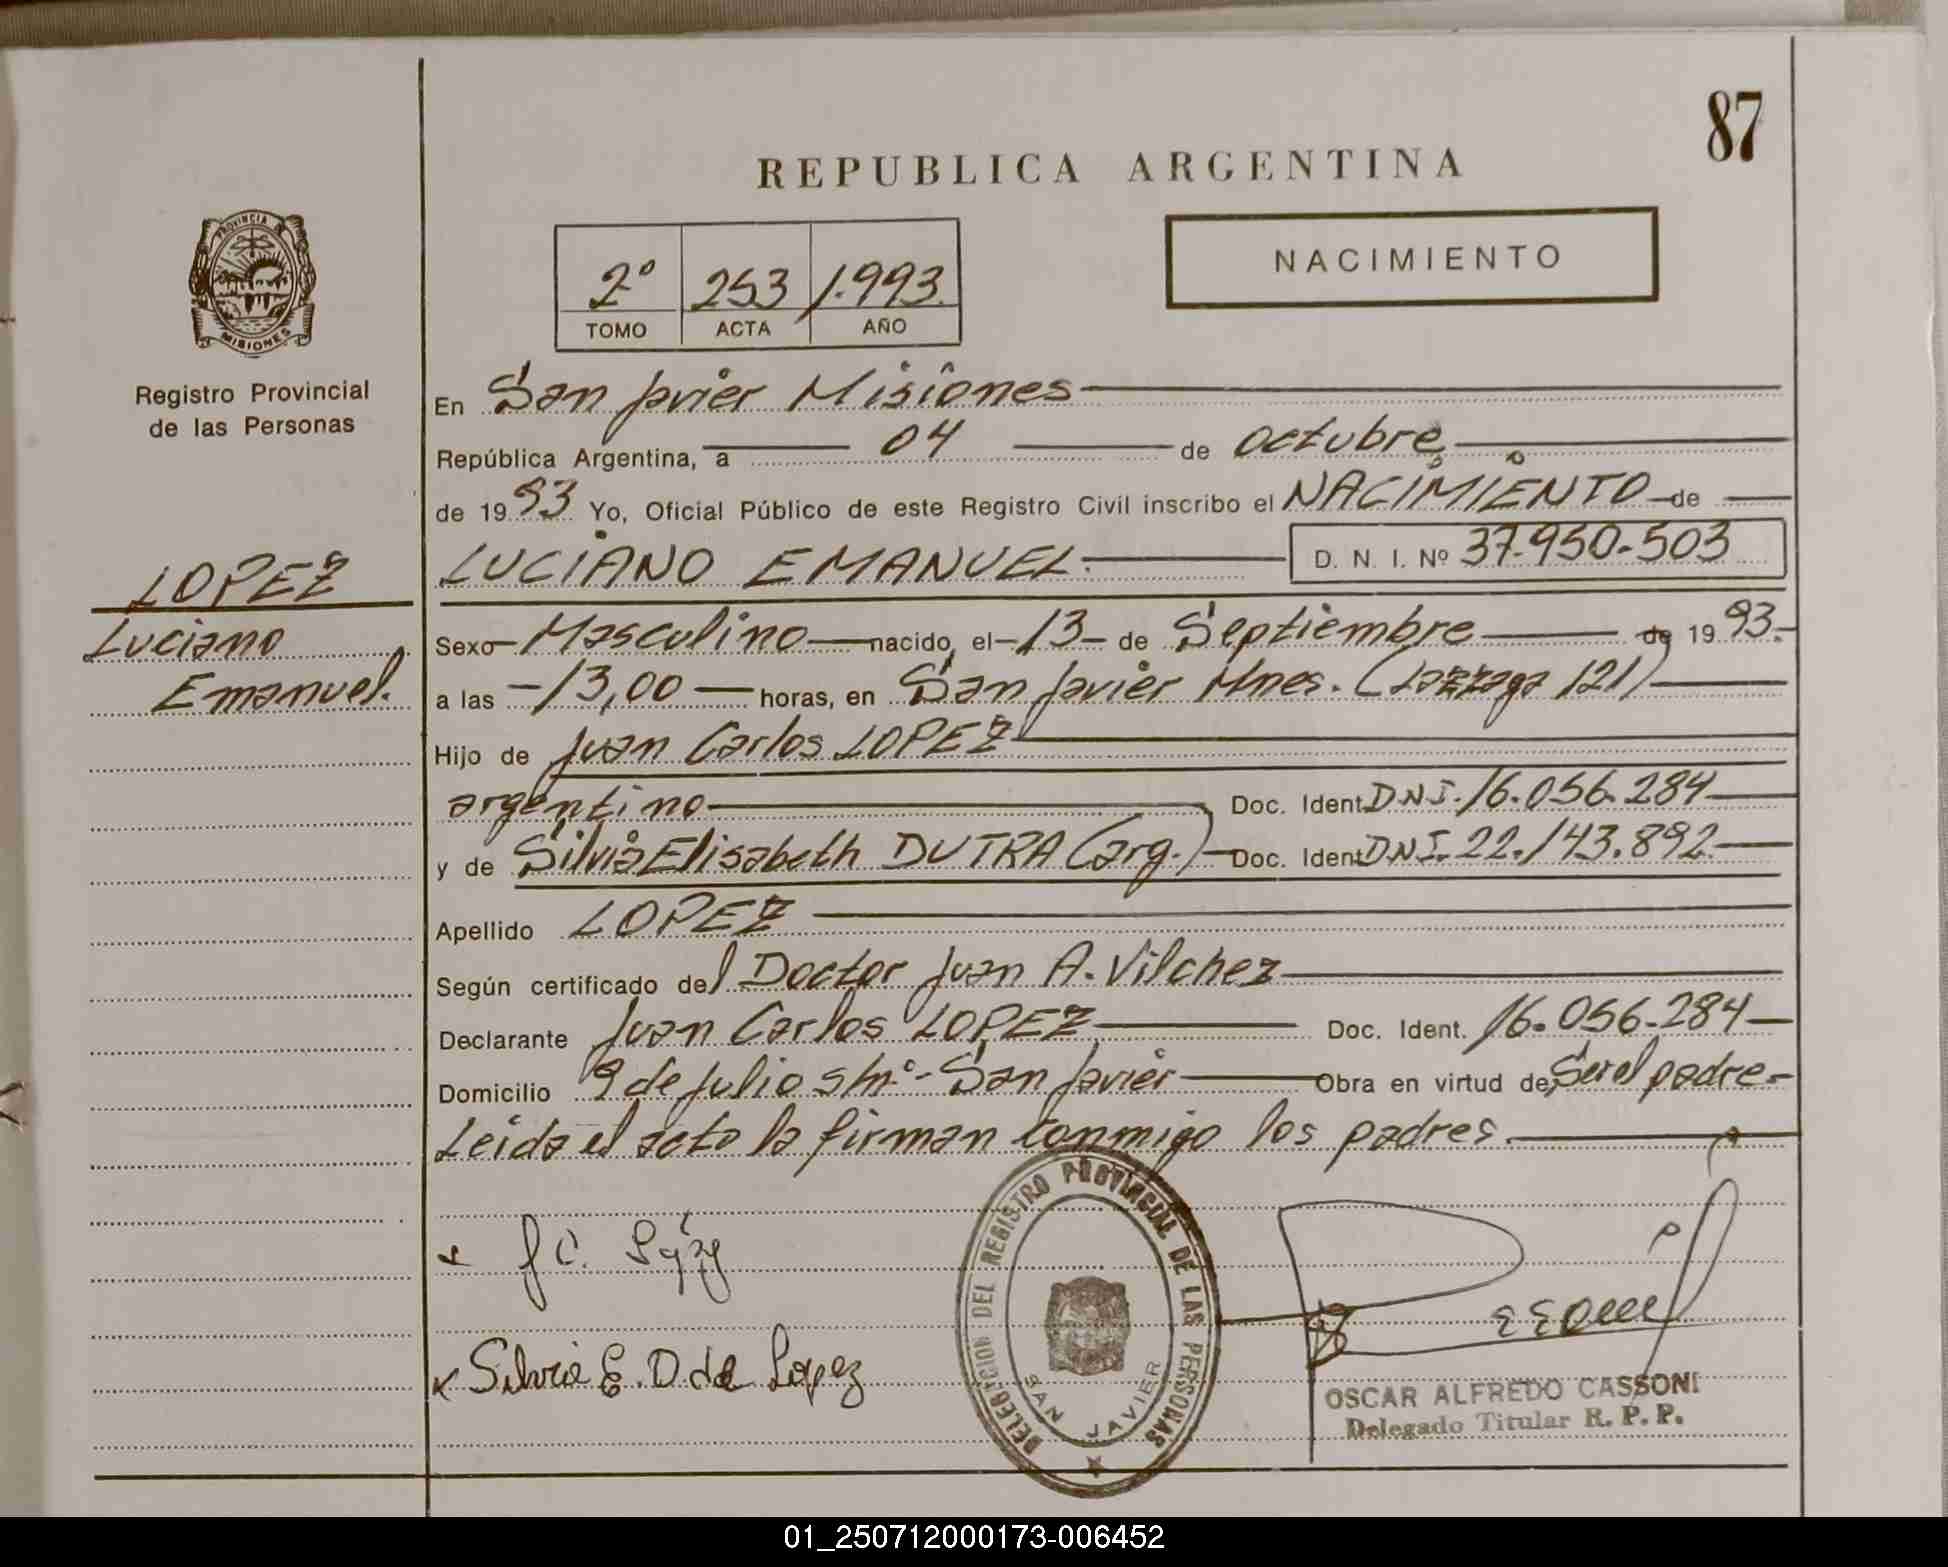 87
REPUBLICA ARGENTINA
PROVINCIA
MISIONES
Registro Provincial
de las Personas
2º 253 1.993.
TOMO ACTA AÑO
NACIMIENTO
En San Javier Misiones
República Argentina, a 04 de octubre
de 1993 Yo, Oficial Público de este Registro Civil inscribo el NACIMIENTO de
LOPEZ
Luciano
Emanuel.
LUCIANO EMANUEL. D. N. I. Nº 37.950.503
Sexo Masculino nacido el 13 de Septiembre de 1993.
a las 13,00 horas, en San Javier Mnes. ( 121)
Hijo de Juan Carlos LOPEZ
argentino Doc. Ident. DNI. 16.056.284
y de Silvia Elisabeth DUTRA (arg.) Doc. Ident. DNI. 22.143.892.
Apellido LOPEZ
Según certificado del Doctor Juan A. Vilchez
Declarante Juan Carlos LOPEZ Doc. Ident. 16.056.284
Domicilio 9 de Julio s/nº - San Javier Obra en virtud de Ser el padre.
Leida el acto la firman conmigo los padres.
J C.
Silvia E. D de Lopez
DELEGACION DEL REGISTRO PROVINCIAL DE LAS PERSONAS
SAN JAVIER
OSCAR ALFREDO CASSONI
Delegado Titular R. P. P.
01_250712000173-006452